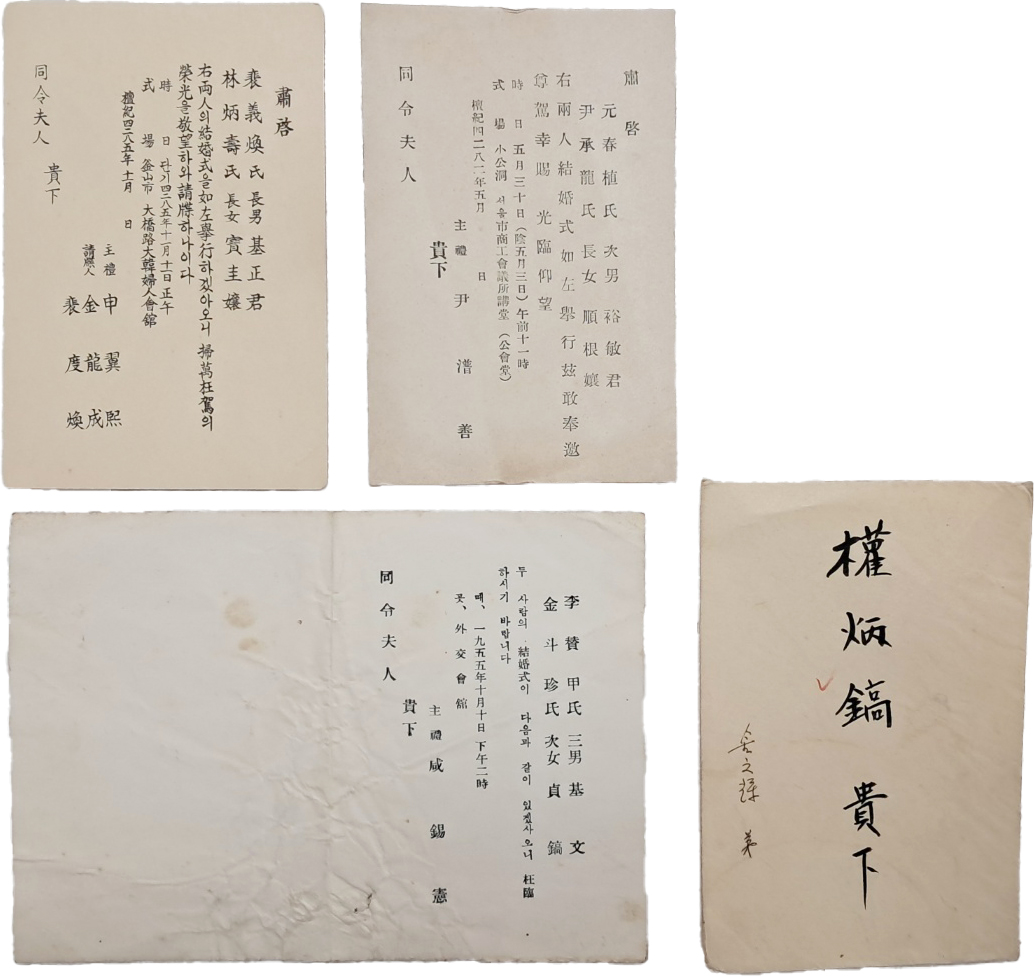 肅啓
裵義煥氏 長男 基正君
林炳壽氏 長女 寶圭孃
右両人의結婚式을如左擧行하겠아오니 掃萬枉駕의
榮光을敬望하와請牒하나이다
時 日 단기四二八五年十一月十一日 正午
式 場 釜山市 大橋路大韓婦人會舘
檀紀四二八五年十一月 日
主禮 申翼熙
請牒人 金龍成
裵度煥
同令夫人 貴下
肅啓
元春植氏 次男 裕敏君
尹承龍氏 長女 順根孃
右兩人結婚式如左擧行玆敢奉邀
尊駕幸賜 光臨仰望
時 日 五月三十日(陰五月三日)午前十一時
式 場 小公洞 서울市商工會議所講堂(公會堂)
檀紀四二八二年五月 日
主禮 尹潽善
同令夫人 貴下
李贊甲氏 三男 基文
金斗珍氏 次女 貞鎬
두 사람의 結婚式이 다음과 같이 있겠사오니 枉臨
하시기 바랍니다
때、一九五五年十月十日 下午二時
곳、外交會舘
主禮 咸錫憲
同令夫人 貴下
權炳鎬 貴下
弟